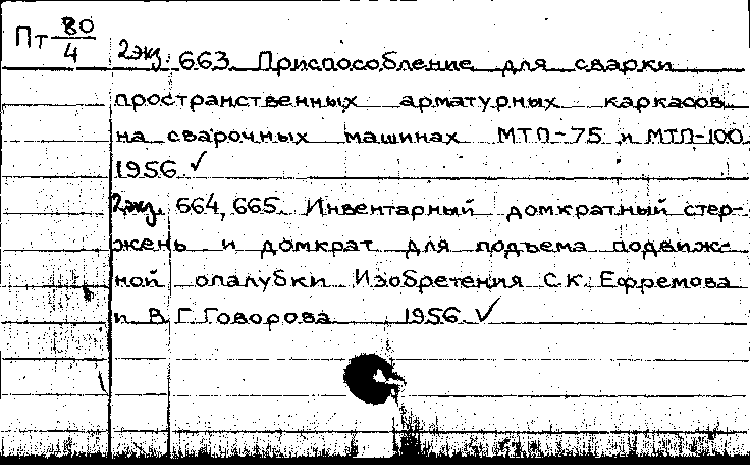 Пт 80/4
2экз. 663. Приспособление для сварки
пространственных арматурных каркасов
на сварочных машинах МТП-75 и МТП-100
1956. ✓
2экз. 664, 665. Инвентарный домкратный стер-
жень и домкрат для подъема подвиж-
ной опалубки Изобретения С.К. Ефремова
и В.Г. Говорова 1956. ✓